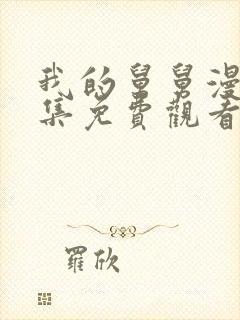 我的舅舅漫
集免費觀看
羅欣